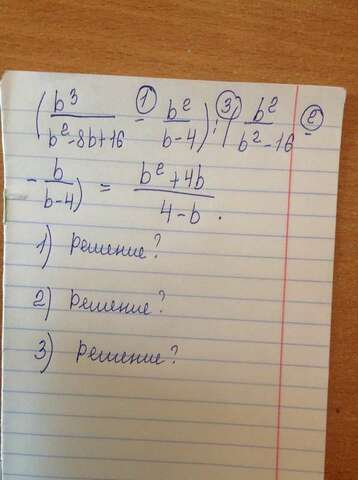 ( b³/(b²-8b+16) -① b²/(b-4) ) :③ ( b²/(b²-16) -②
- b/(b-4) ) = (b²+4b)/(4-b) .
1) решение?
2) решение?
3) решение?